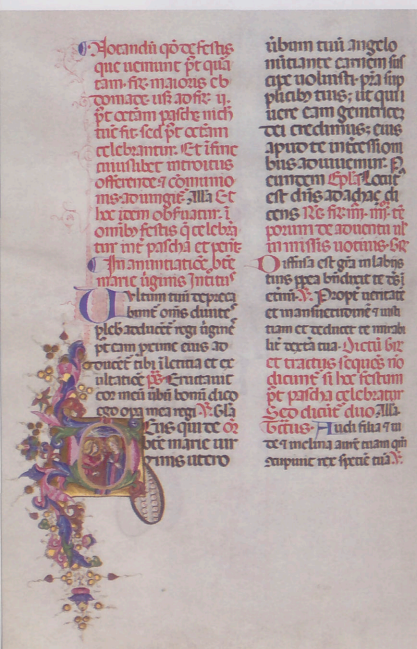 Notandū qḋ de festis
que ueniunt p̄t qua
tam. fīr maioris eb
domade usq; ad fīr ij.
p̄t octam pasche nich
tūc fit sed p̄t octām
celebrantur. Et ī fine
cuiuslibet introitus
offerende ⁊ cōmunio
nis adiungit alla Et
hoc idem obseruatur ī
omībȝ festis q celebrā
tur int̄ pascha et pent
In anuntiatiōe btē
marie ūginis Introitꝰ
Vultum tuū depreca
bunt̄ om̄s diuite
plebis adducēt̄ regi ūgīes
p̄t eam proxime eius ad
ducēt̄ tibi ī letitia et ex
ultatiōe p̄s Eructauit
cor meū ūbū bonū dico
ego opa mea regi ℟ Glā
Deus qui de or
bte marie uir
ginis utero
ūbum tuū angelo
nūtiante carnem sus
cipe uoluisti. pr̄a sup
plicibȝ tuis; ut qui
uere eam genitricē
dei credimus; eius
apud te intercession
ibus adiuuemur. P
eundem Epl̄a Locutꝰ
est dn̄s ad achaç di
cens Re fir iiij. iiijor tē
porum de aduentu ul
in missis uotiuis. Gr̄
Diffusa est grā in labijs
tuis pp̄ea bn̄dixit te dē ī
etnū. ℣. Propt̄ ueritatē
et mansuetudinē ⁊ iusti
tiam et deducet te mirabi
lit̄ dextra tua. Dictū Gr̄
et tractus sequēs nō
dicunt̄ si hoc festum
p̄t pascha celebratur
Sed dicūt̄ duo Alla.
Tc̄tus. Audi filia ⁊ ui
de ⁊ inclina aurē tuam q̄m
ꝯcupiuit rex spetiē tuā ℣.